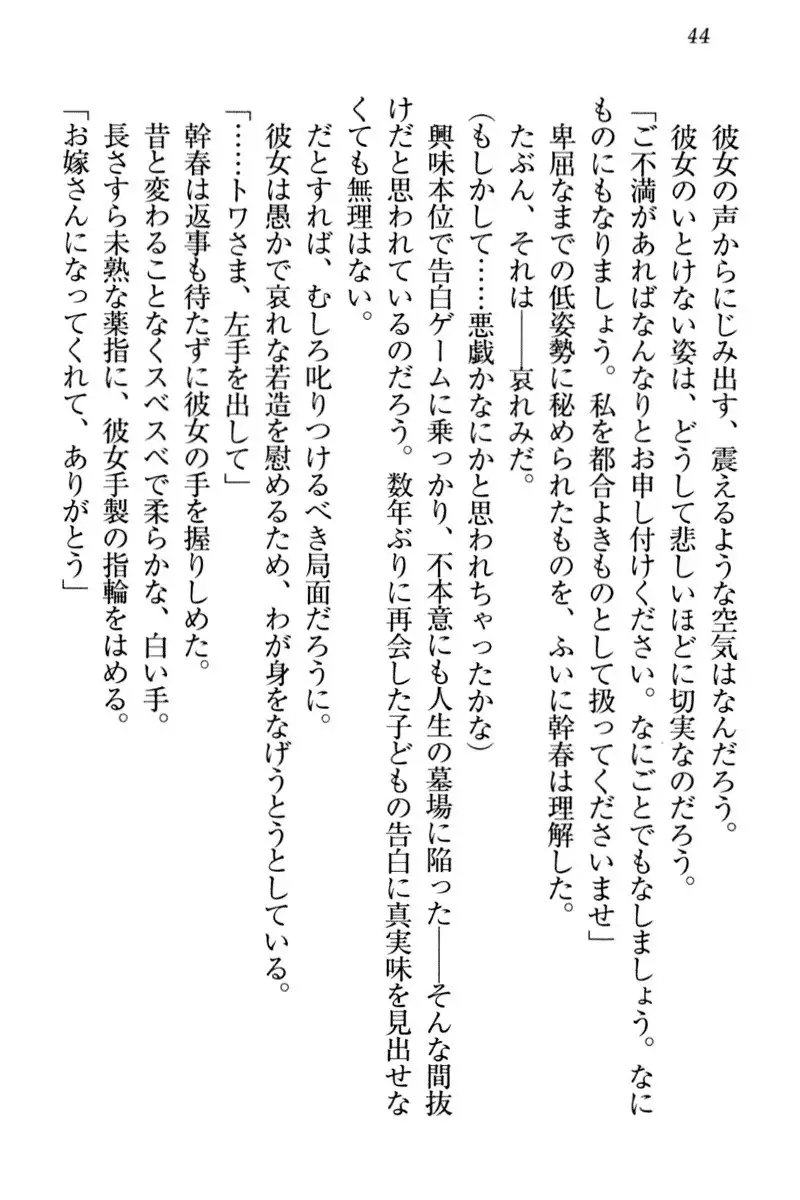 44
彼女の声からにじみ出す、震えるような空気はなんだろう。
彼女のいとけない姿は、どうして悲しいほどに切実なのだろう。
「ご不満があればなんなりとお申し付けください。なにごとでもなしましょう。なに
ものにもなりましょう。私を都合よきものとして扱ってくださいませ」
卑屈なまでの低姿勢に秘められたものを、ふいに幹春は理解した。
たぶん、それは――哀れみだ。
(もしかして……悪戯かなにかと思われちゃったかな)
興味本位で告白ゲームに乗っかり、不本意にも人生の墓場に陥った――そんな間抜
けだと思われているのだろう。数年ぶりに再会した子どもの告白に真実味を見出せな
くても無理はない。
だとすれば、むしろ叱りつけるべき局面だろうに。
彼女は愚かで哀れな若造を慰めるため、わが身をなげうとうとしている。
「……トワさま、左手を出して」
幹春は返事も待たずに彼女の手を握りしめた。
昔と変わることなくスベスベで柔らかな、白い手。
長さすら未熟な薬指に、彼女手製の指輪をはめる。
「お嫁さんになってくれて、ありがとう」